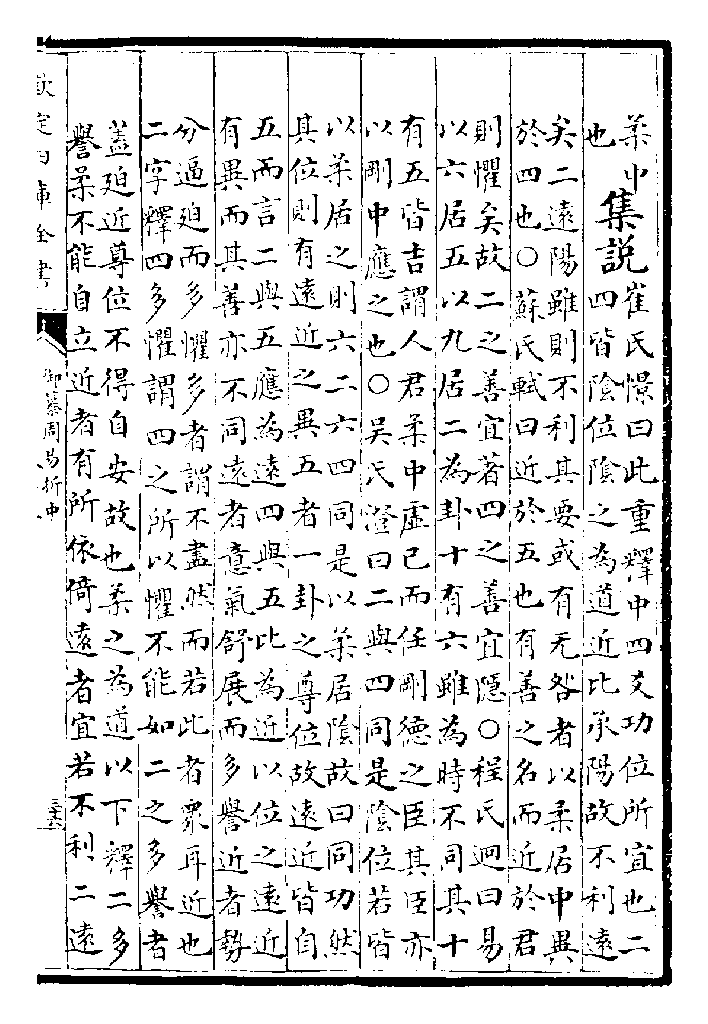 柔中
也
集説
崔氏憬曰此重釋中四爻功位所宜也二
四皆陰位陰之為道近比承陽故不利遠
矣二遠陽雖則不利其要或有无咎者以柔居中異
於四也○蘇氏軾曰近於五也有善之名而近於君
則懼矣故二之善宜著四之善宜隱○程氏迥曰易
以六居五以九居二為卦十有六雖為時不同其十
有五皆吉謂人君柔中虛已而任剛德之臣其臣亦
以剛中應之也○吳氏澄曰二與四同是陰位若皆
以柔居之則六二六四同是以柔居陰故曰同功然
其位則有遠近之異五者一卦之尊位故遠近皆自
五而言二與五應為遠四與五比為近以位之遠近
有異而其善亦不同遠者意氣舒展而多譽近者勢
分逼迫而多懼多者謂不盡然而若此者衆耳近也
二字釋四多懼謂四之所以懼不能如二之多譽者
蓋迫近尊位不得自安故也柔之為道以下釋二多
譽柔不能自立近者有所依倚遠者宜若不利二遠
欽定四庫全書
御纂周易折中